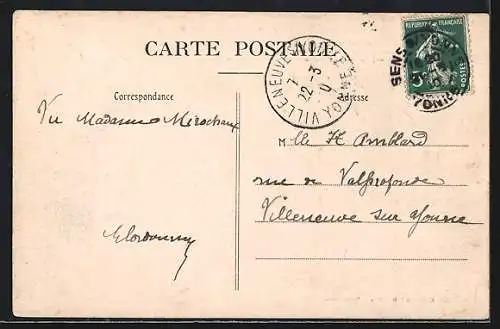 CARTE POSTALE
Correspondance
Adresse
VILLENEUVE YONNE
7
22-3
YONNE
REPUBLIQUE FRANÇAISE
POSTES
5
SENS
YONNE
Vu Madame
Mlle H Amblard
rue de Valprofonde
Villeneuve sur Yonne